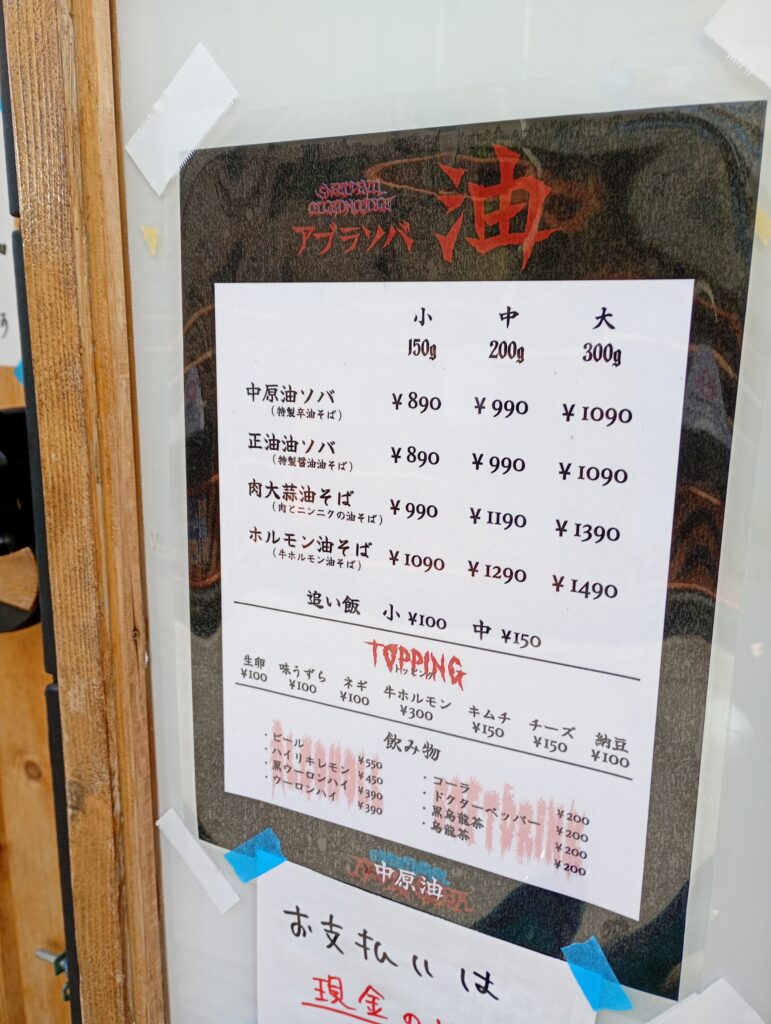 アブラソバ 油
小 中 大
150g 200g 300g
中原油ソバ ¥890 ¥990 ¥1090
（特製辛油そば）
正油油ソバ ¥890 ¥990 ¥1090
（特製醤油油そば）
肉大蒜油そば ¥990 ¥1190 ¥1390
（肉とニンニクの油そば）
ホルモン油そば ¥1090 ¥1290 ¥1490
（牛ホルモン油そば）
追い飯 小 ¥100 中 ¥150
TOPPING
トッピング
生卵 味うずら ネギ 牛ホルモン キムチ チーズ 納豆
¥100 ¥100 ¥100 ¥300 ¥150 ¥150 ¥100
飲み物
・ビール ¥550
・ハイリキレモン ¥450
・黒ウーロンハイ ¥390
・ウーロンハイ ¥390
・コーラ ¥200
・ドクターペッパー ¥200
・黒烏龍茶 ¥200
・烏龍茶 ¥200
中原油
お支払いは
現金の